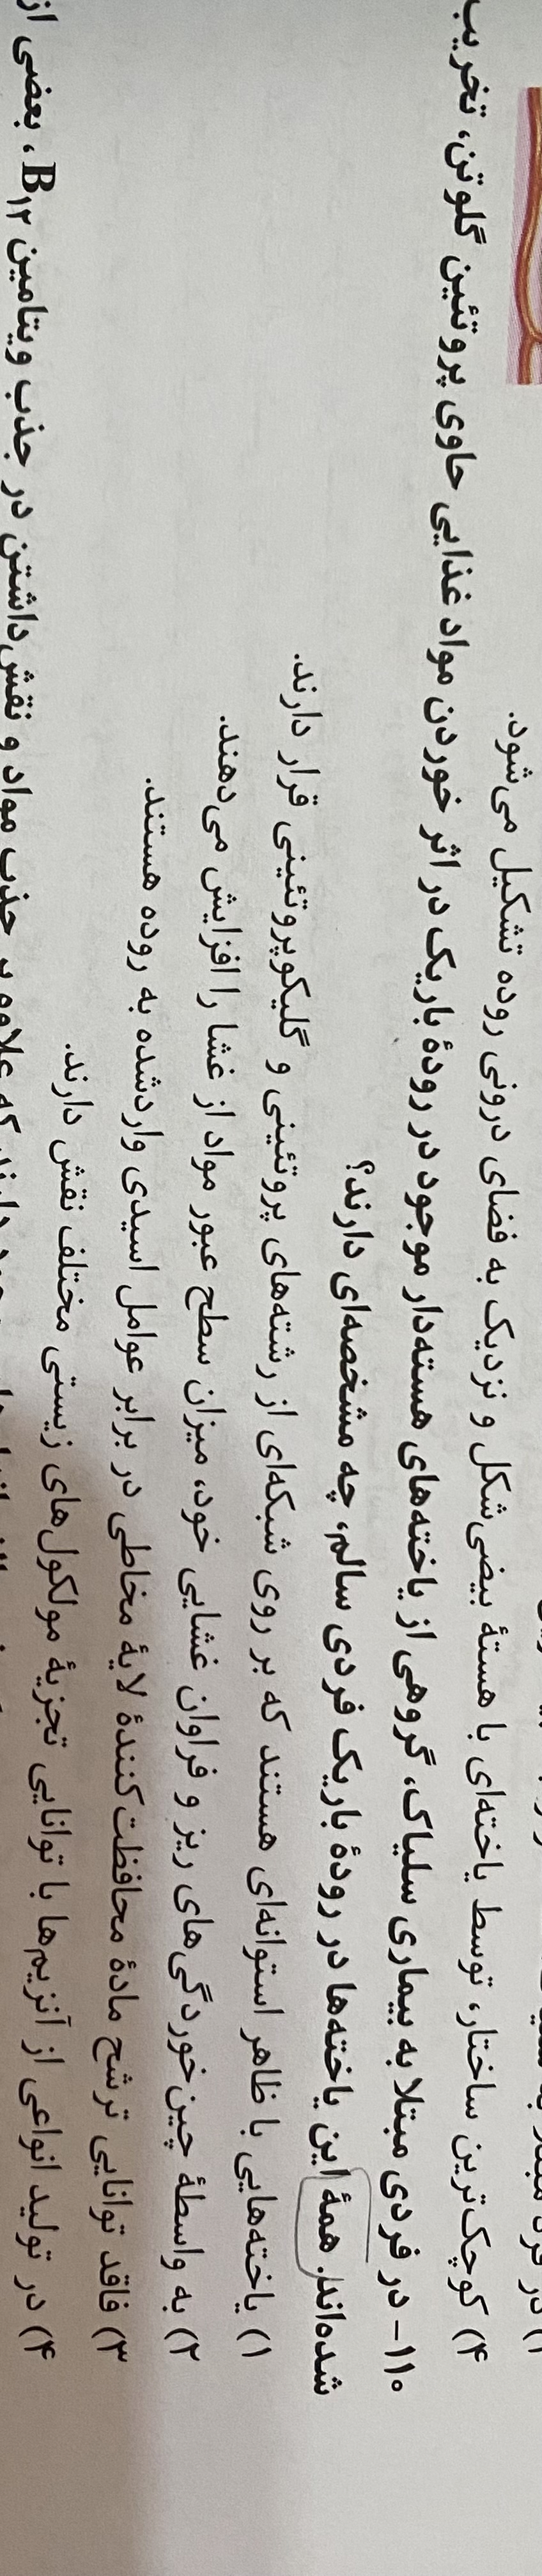 ۴) کوچک‌ترین ساختار، توسط یاخته‌ای با هستهٔ بیضی‌شکل و نزدیک به فضای درونی روده تشکیل می‌شود.
۱۱۰- در فردی مبتلا به بیماری سلیاک، گروهی از یاخته‌های هسته‌دار موجود در رودهٔ باریک در اثر خوردن مواد غذایی حاوی پروتئین گلوتن، تخریب
شده‌اند. همهٔ این یاخته‌ها در رودهٔ باریک فردی سالم، چه مشخصه‌ای دارند؟
۱) یاخته‌هایی با ظاهر استوانه‌ای هستند که بر روی شبکه‌ای از رشته‌های پروتئینی و گلیکوپروتئینی قرار دارند.
۲) به واسطهٔ چین‌خوردگی‌های ریز و فراوان غشایی خود، میزان سطح عبور مواد از غشا را افزایش می‌دهند.
۳) فاقد توانایی ترشح مادهٔ محافظت‌کنندهٔ لایهٔ مخاطی در برابر عوامل اسیدی واردشده به روده هستند.
۴) در تولید انواعی از آنزیم‌ها با توانایی تجزیهٔ مولکول‌های زیستی مختلف نقش دارند.
جذب مواد و نقش‌داشتن در جذب ویتامین B۱۲، بعضی از